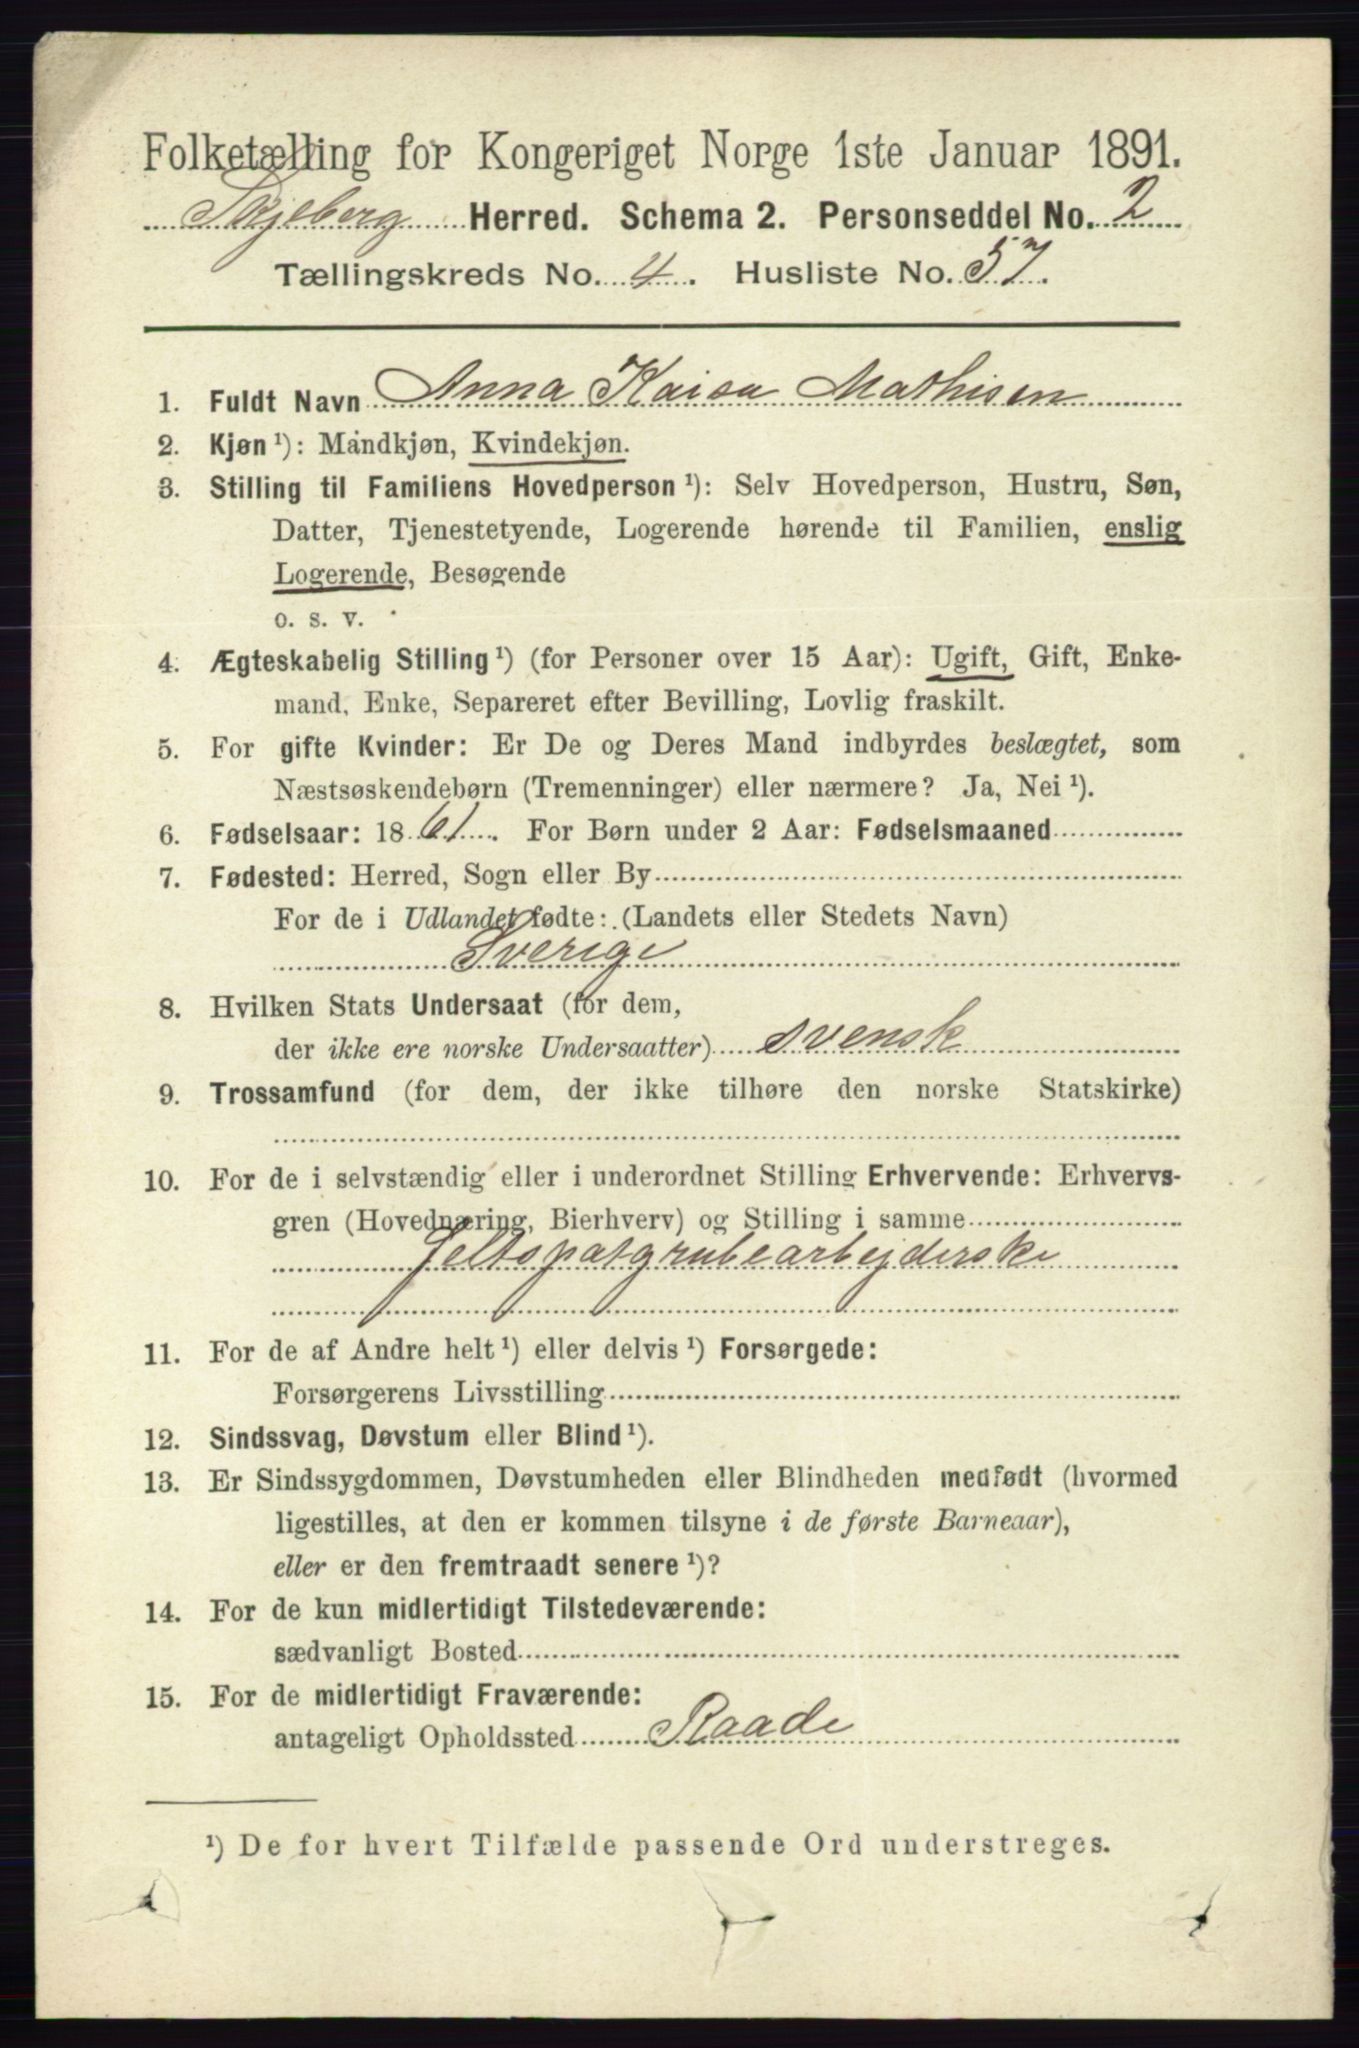 Folketælling for Kongeriget Norge 1ste Januar 1891.
Skjeberg Herred. Schema 2. Personseddel No. 2
Tællingskreds No. 4. Husliste No. 57.
1. Fuldt Navn Anna Kaisa Mathisen
2. Kjøn ¹): Mandkjøn, Kvindekjøn.
3. Stilling til Familiens Hovedperson ¹): Selv Hovedperson, Hustru, Søn,
Datter, Tjenestetyende, Logerende hørende til Familien, enslig
Logerende, Besøgende
o. s. v.
4. Ægteskabelig Stilling ¹) (for Personer over 15 Aar): Ugift, Gift, Enke-
mand, Enke, Separeret efter Bevilling, Lovlig fraskilt.
5. For gifte Kvinder: Er De og Deres Mand indbyrdes beslægtet, som
Næstsøskendebørn (Tremenninger) eller nærmere? Ja, Nei ¹).
6. Fødselsaar: 1861. For Børn under 2 Aar: Fødselsmaaned
7. Fødested: Herred, Sogn eller By
For de i Udlandet fødte: (Landets eller Stedets Navn)
Sverige
8. Hvilken Stats Undersaat (for dem,
der ikke ere norske Undersaatter) svensk
9. Trossamfund (for dem, der ikke tilhøre den norske Statskirke)
10. For de i selvstændig eller i underordnet Stilling Erhvervende: Erhvervs-
gren (Hovednæring, Bierhverv) og Stilling i samme
Feltspatgrubearbejderske
11. For de af Andre helt ¹) eller delvis ¹) Forsørgede:
Forsørgerens Livsstilling
12. Sindssvag, Døvstum eller Blind ¹).
13. Er Sindssygdommen, Døvstumheden eller Blindheden medfødt (hvormed
ligestilles, at den er kommen tilsyne i de første Barneaar),
eller er den fremtraadt senere ¹)?
14. For de kun midlertidigt Tilstedeværende:
sædvanligt Bosted
15. For de midlertidigt Fraværende:
antageligt Opholdssted Raade
¹) De for hvert Tilfælde passende Ord understreges.